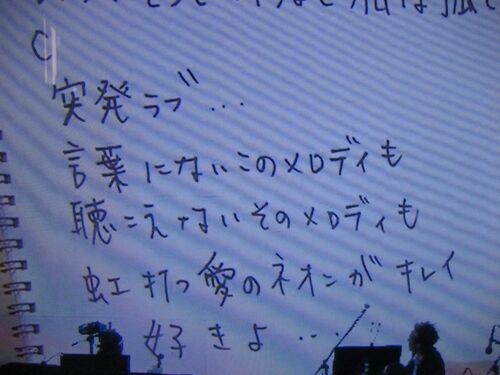 C
突発ラブ…
言葉にないこのメロディも
聴こえないそのメロディも
虹打つ愛のネオンがキレイ
好きよ…